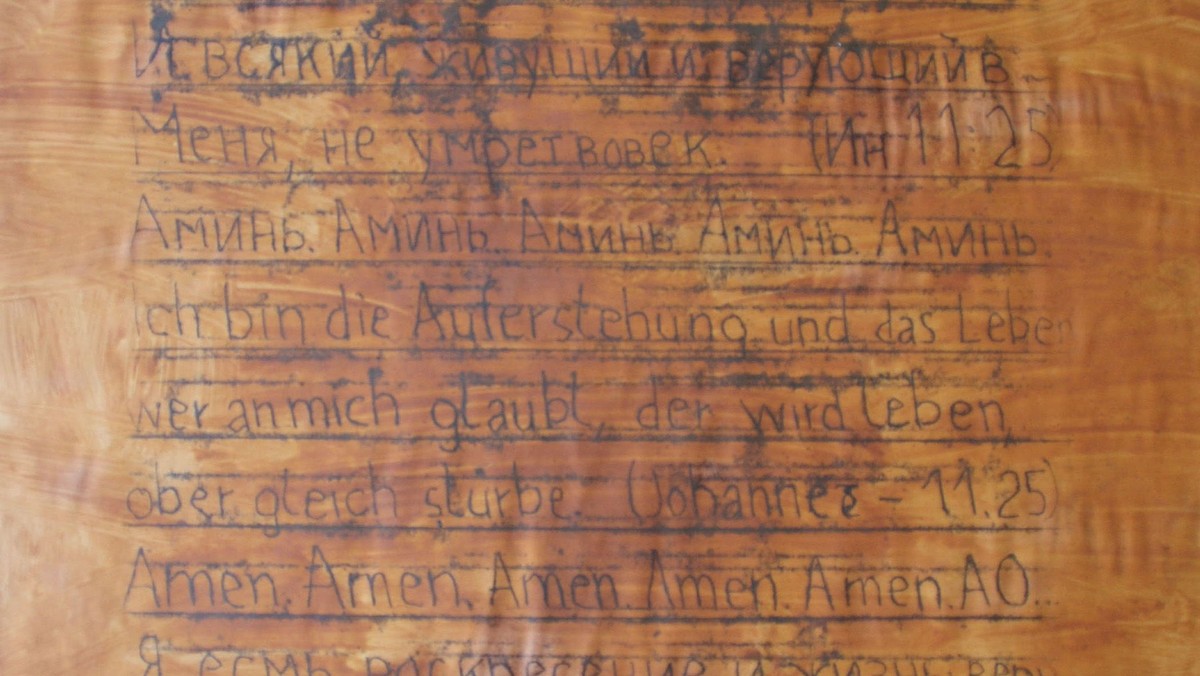 И всякий, живущий и верующий в
Меня, не умрет вовек. (Ин 11:25)
Аминь. Аминь. Аминь. Аминь. Аминь.
Ich bin die Auferstehung und das Leben
wer an mich glaubt, der wird leben,
ober gleich sturbe. (Johannes - 11.25)
Amen. Amen. Amen. Amen. Amen. AO...
Я есмь воскресение и жизнь; веру